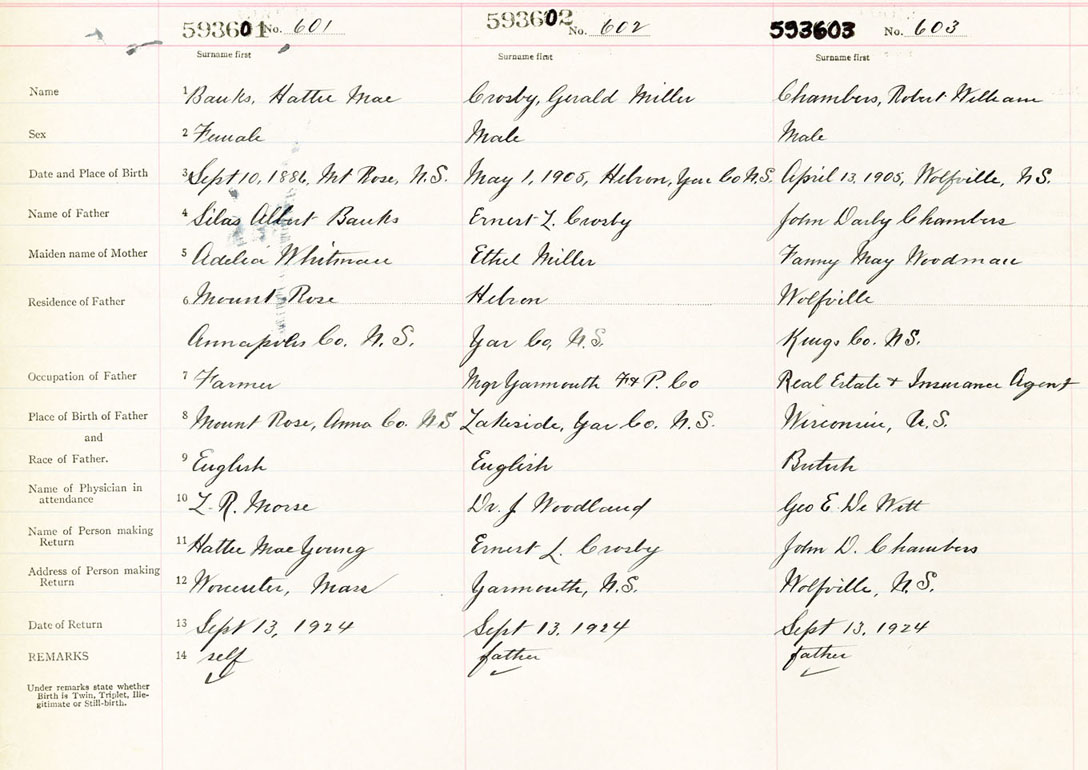 593601 No. 601 593602 No. 602 593603 No. 603
Surname first Surname first Surname first
Name 1 Banks, Hattie Mae Crosby, Gerald Miller Chambers, Robert William
Sex 2 Female Male Male
Date and Place of Birth 3 Sept 10, 1886, Mt Rose, N.S. May 1, 1905, Hebron, Yar Co N.S. April 13, 1905, Wolfville, N.S.
Name of Father 4 Silas Albert Banks Ernest L. Crosby John Darby Chambers
Maiden name of Mother 5 Adelia Whitman Ethel Miller Fanny May Woodman
Residence of Father 6 Mount Rose Hebron Wolfville
Annapolis Co. N.S. Yar Co, N.S. Kings Co. N.S.
Occupation of Father 7 Farmer Mgr Yarmouth F & P. Co Real Estate & Insurance Agent
Place of Birth of Father 8 Mount Rose, Anna Co. N.S Lakeside, Yar Co. N.S. Wisconsin, U.S.
and
Race of Father. 9 English English British
Name of Physician in
attendance 10 L. R. Morse Dr. J Woodland Geo E. De Witt
Name of Person making
Return 11 Hattie Mae Young Ernest L. Crosby John D. Chambers
Address of Person making
Return 12 Worcester, Mass Yarmouth, N.S. Wolfville, N.S.
Date of Return 13 Sept 13, 1924 Sept 13. 1924 Sept 13. 1924
REMARKS 14 self father father
Under remarks state whether
Birth is Twin, Triplet, Ille-
gitimate or Still-birth.